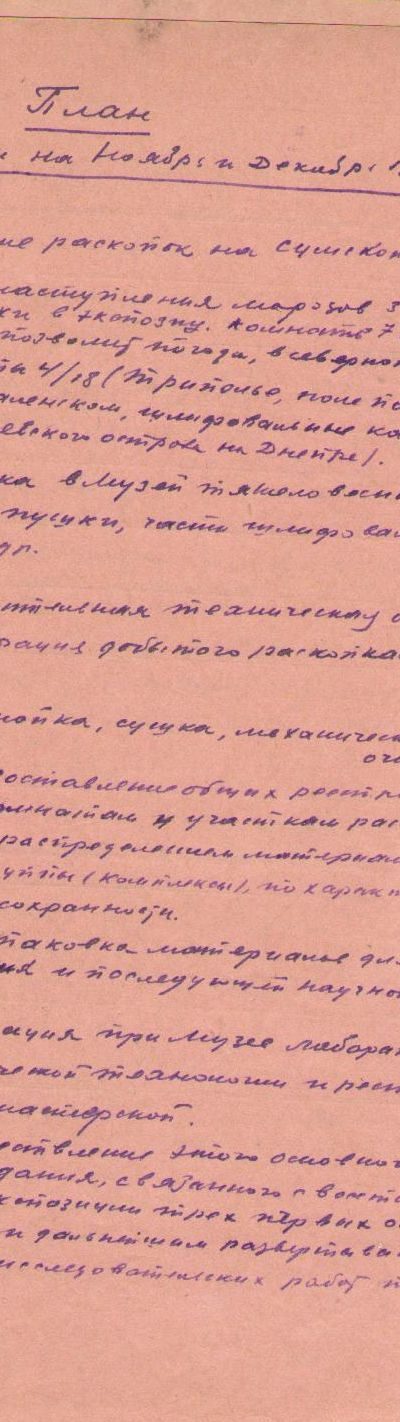 План
на Ноябрь и Декабрь 1
ие раскопок на Сумско
наступления морозов
ки в экспозиц. комнате 7
позволит погода, в северно
ты 4/18 (Триполье, поле п
аленском, шлифовальные ка
евского острова на Днепре).
ка в Музей тяжеловесн
пушки, части шлифова
др.
ительная техническая
рация добытого раскопка
сушка, механическ
очи
составление общих реестр
омнатам и участкам рас
распределением материал
уппы (комплексы), по характ
сохранности.
паковка материалов дл
ия и последующей научно
ация при Музее лабора
ческой технологии и рест
мастерской.
ествление этого основног
дания, связанного с восст
кспозиции трех первых о
и дальнейшим развертыва
исследовательских работ п